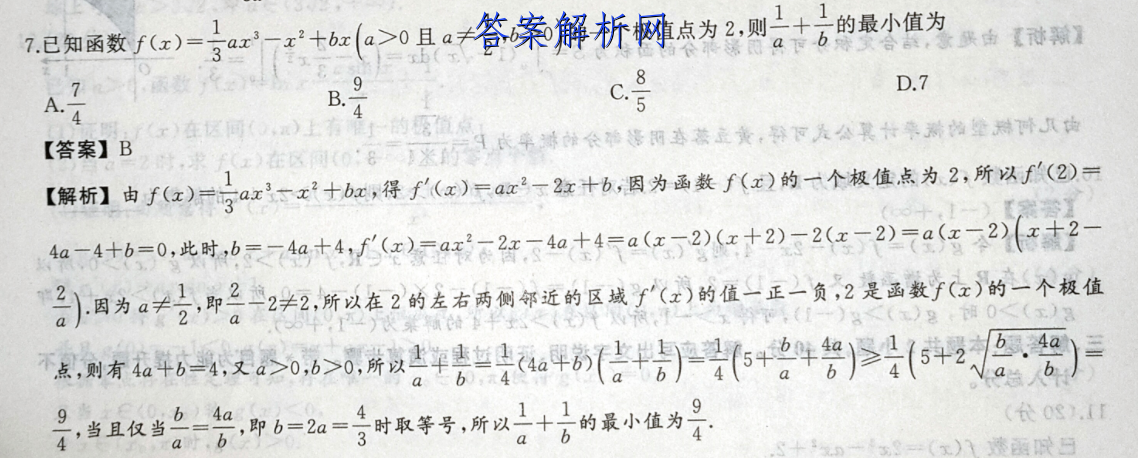 7.已知函数 f(x)=\frac{1}{3}ax³-x²+bx(a>0 且 a≠ 极值点为 2,则\frac{1}{a}+\frac{1}{b}的最小值为
答案解析网
A.\frac{7}{4} B.\frac{9}{4} C.\frac{8}{5} D.7
【答案】B
【解析】由 f(x)=\frac{1}{3}ax³-x²+bx,得 f′(x)=ax²-2x+b,因为函数 f(x)的一个极值点为 2,所以 f′(2)=
4a-4+b=0,此时,b=-4a+4,f′(x)=ax²-2x-4a+4=a(x-2)(x+2)-2(x-2)=a(x-2)(x+2-
\frac{2}{a}).因为 a≠\frac{1}{2},即\frac{2}{a}-2≠2,所以在 2 的左右两侧邻近的区域 f′(x)的值一正一负,2 是函数 f(x)的一个极值
点,则有 4a+b=4,又 a>0,b>0,所以\frac{1}{a}+\frac{1}{b}=\frac{1}{4}(4a+b)(\frac{1}{a}+\frac{1}{b})=\frac{1}{4}(5+\frac{b}{a}+\frac{4a}{b})≥\frac{1}{4}(5+2\sqrt{\frac{b}{a}·\frac{4a}{b}})=
\frac{9}{4},当且仅当\frac{b}{a}=\frac{4a}{b},即 b=2a=\frac{4}{3}时取等号,所以\frac{1}{a}+\frac{1}{b}的最小值为\frac{9}{4}.